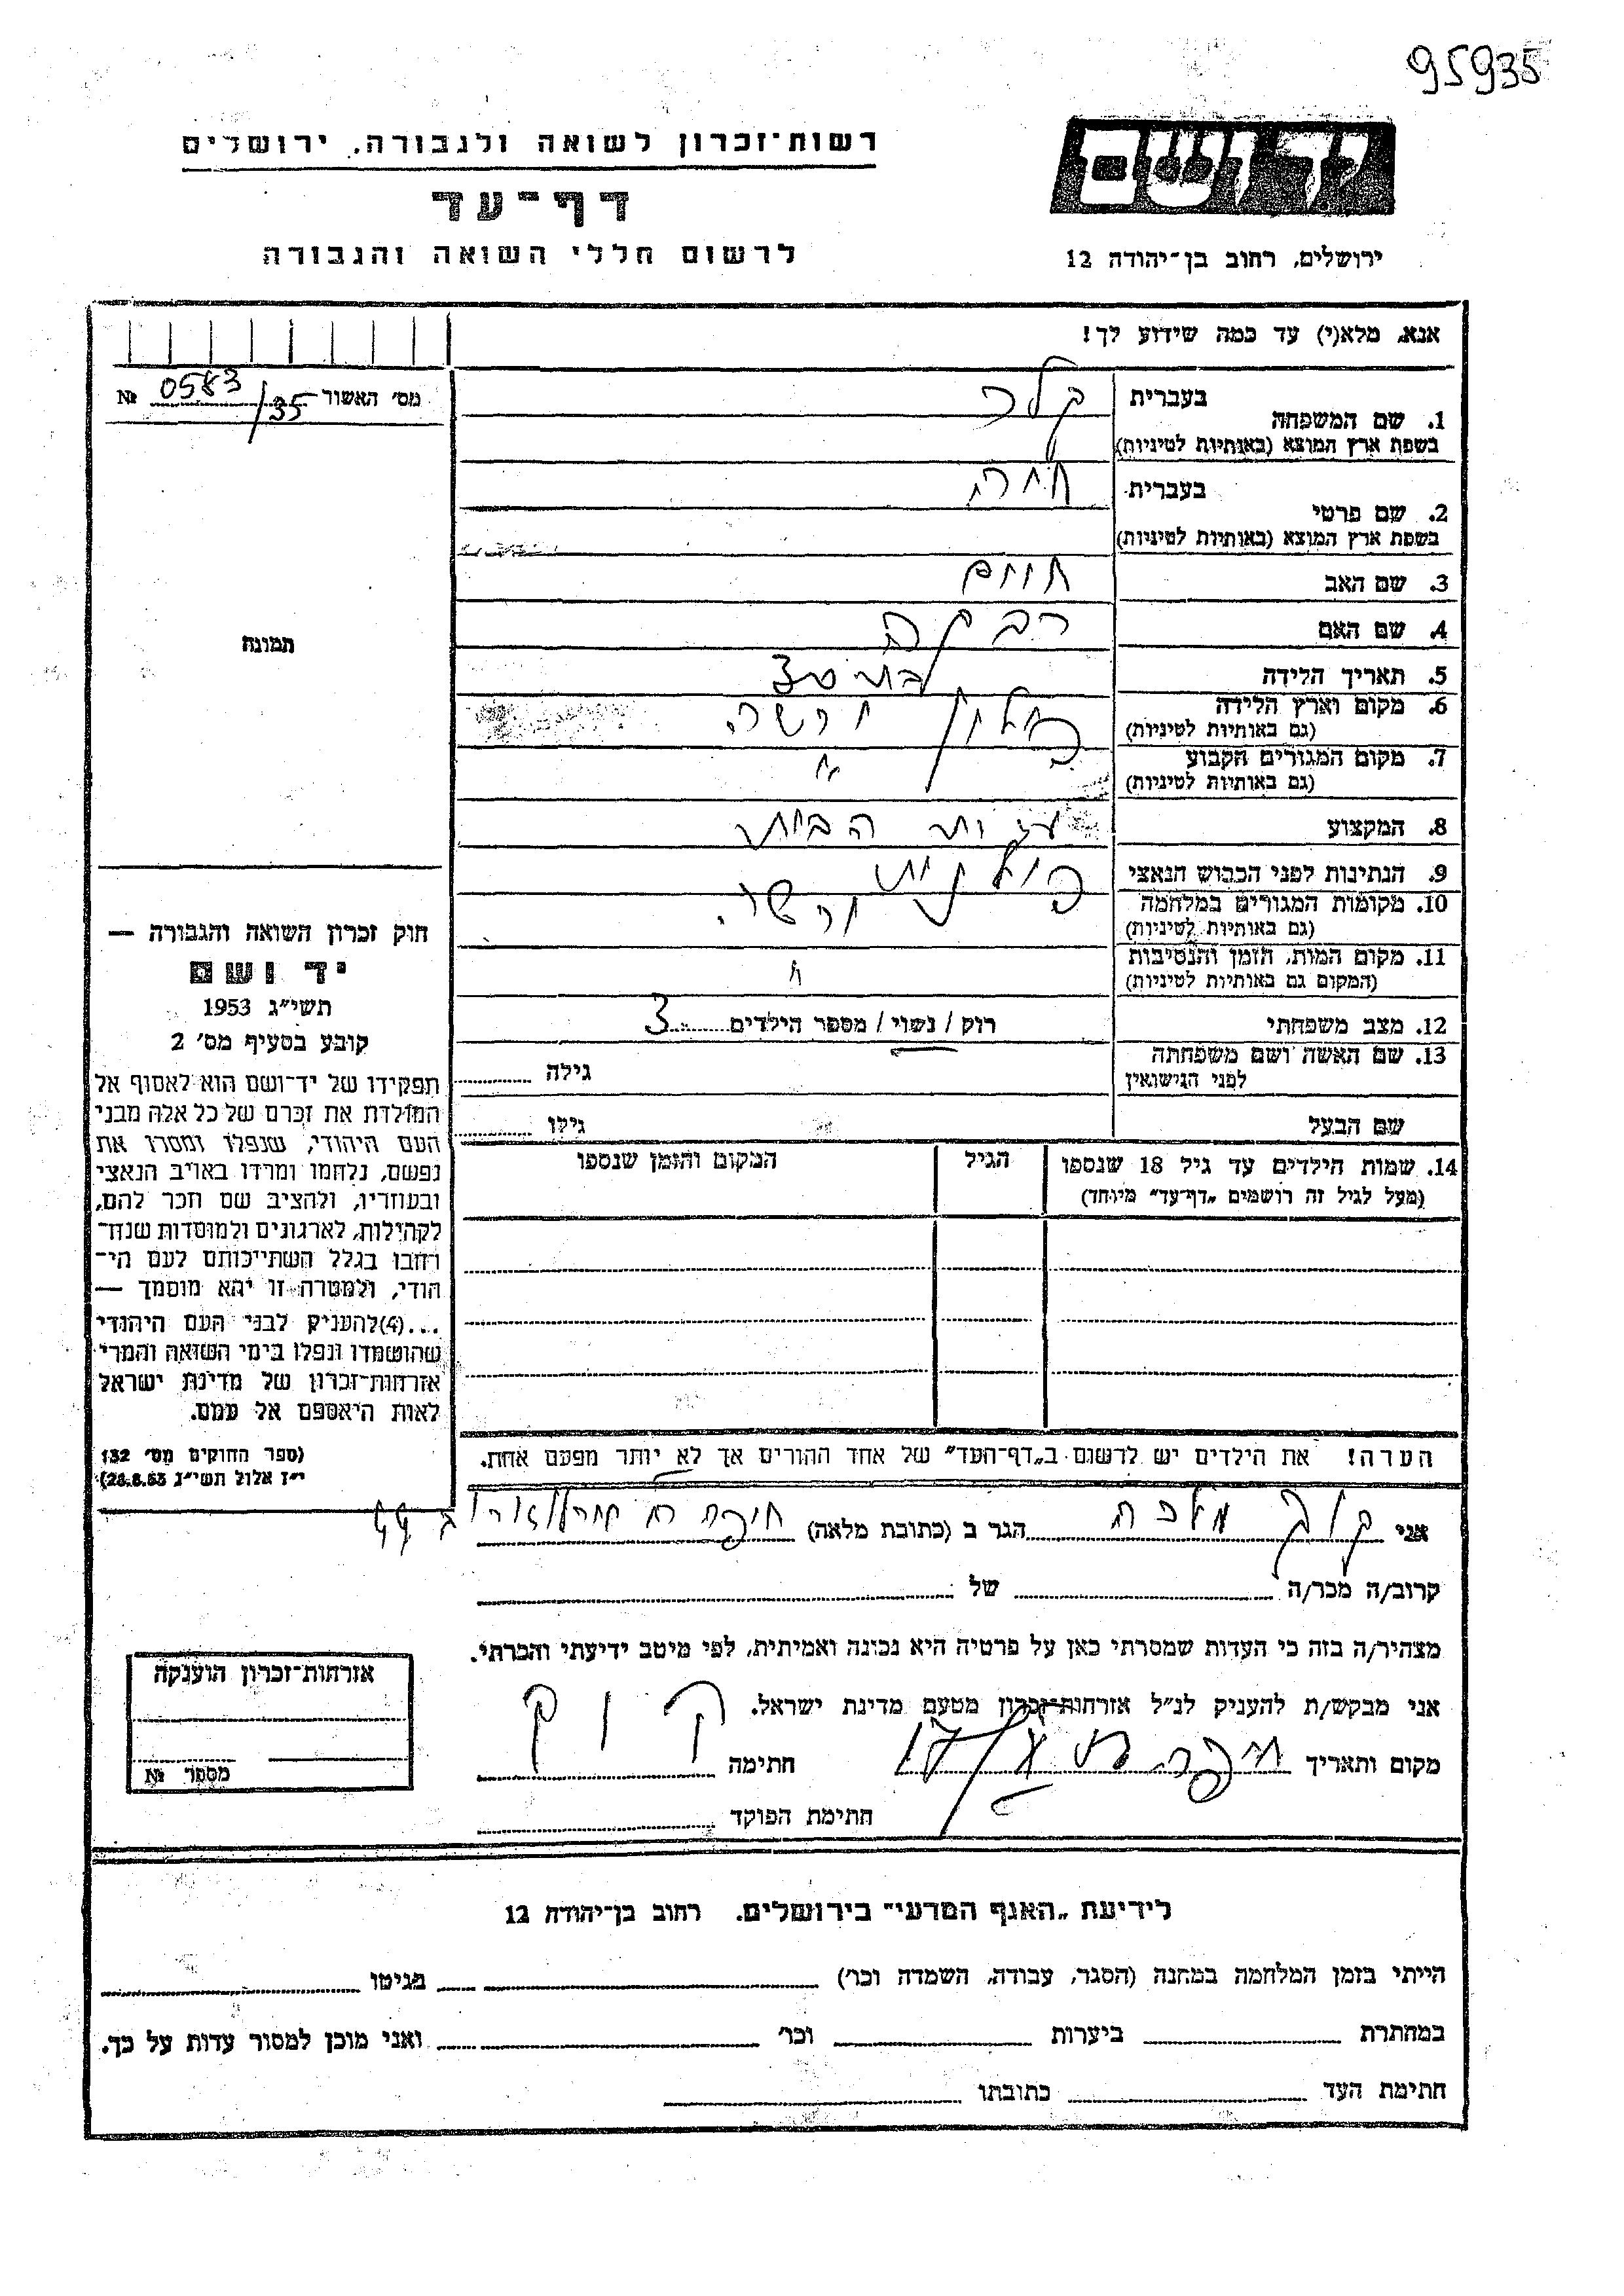 95935
רשות־זכרון לשואה ולגבורה, ירושלים
דף־עד
לרשום חללי השואה והגבורה
יד ושם
ירושלים, רחוב בן־יהודה 12
אנא, מלא(י) עד כמה שידוע לך!
מס׳ האשור 0583/35 №
בעברית קלר
1. שם המשפחה
בשפת ארץ המוצא (באותיות לטיניות)
בעברית חיה
2. שם פרטי
בשפת ארץ המוצא (באותיות לטיניות)
3. שם האב חיים
4. שם האם רבקה
5. תאריך הלידה
6. מקום וארץ הלידה פולין ורשה
(גם באותיות לטיניות)
7. מקום המגורים הקבוע "
(גם באותיות לטיניות)
8. המקצוע הבית
9. הנתינות לפני הכבוש הנאצי פולנית
10. מקומות המגורים במלחמה ורשה
(גם באותיות לטיניות)
11. מקום המות, הזמן והנסיבות "
(המקום גם באותיות לטיניות)
12. מצב משפחתי רוק / נשוי / מספר הילדים 3
13. שם האשה ושם משפחתה
לפני הנישואין גילה
שם הבעל גילו
14. שמות הילדים עד גיל 18 שנספו הגיל המקום והזמן שנספו
(מעל לגיל זה רושמים „דף־עד" מיוחד)
הערה! את הילדים יש לרשום ב„דף־העד" של אחד ההורים אך לא יותר מפעם אחת.
תמונה
חוק זכרון השואה והגבורה —
יד ושם
תשי״ג 1953
קובע בסעיף מס׳ 2
תפקידו של יד־ושם הוא לאסוף אל
המולדת את זכרם של כל אלה מבני
העם היהודי, שנפלו ומסרו את
נפשם, נלחמו ומרדו באויב הנאצי
ובעוזריו, ולהציב שם וזכר להם,
לקהילות, לארגונים ולמוסדות שנח־
רחבו בגלל השתייכותם לעם הי־
הודי, ולמטרה זו יהא מוסמך —
...(4)להעניק לבני העם היהודי
שהושמדו ונפלו בימי השואה והמרי
אזרחות־זכרון של מדינת ישראל
לאות היאספם אל עמם.
(ספר החוקים מס׳ 132
י״ז אלול תשי״ג 28.8.53)
אני קוק מלכה הגר ב (כתובת מלאה) חיפה רח 44
קרוב/ה מכר/ה של
מצהיר/ה בזה כי העדות שמסרתי כאן על פרטיה היא נכונה ואמיתית, לפי מיטב ידיעתי והכרתי.
אני מבקש/ת להעניק לנ״ל אזרחות־זכרון מטעם מדינת ישראל.
מקום ותאריך חיפה חתימה קוק
חתימת הפוקד
אזרחות־זכרון הוענקה
מספר №
לידיעת „האגף המדעי" בירושלים, רחוב בן־יהודה 12
הייתי בזמן המלחמה במחנה (הסגר, עבודה, השמדה וכר׳) בגיטו
במחתרת ביערות וכר׳ ואני מוכן למסור עדות על כך.
חתימת העד כתובתו